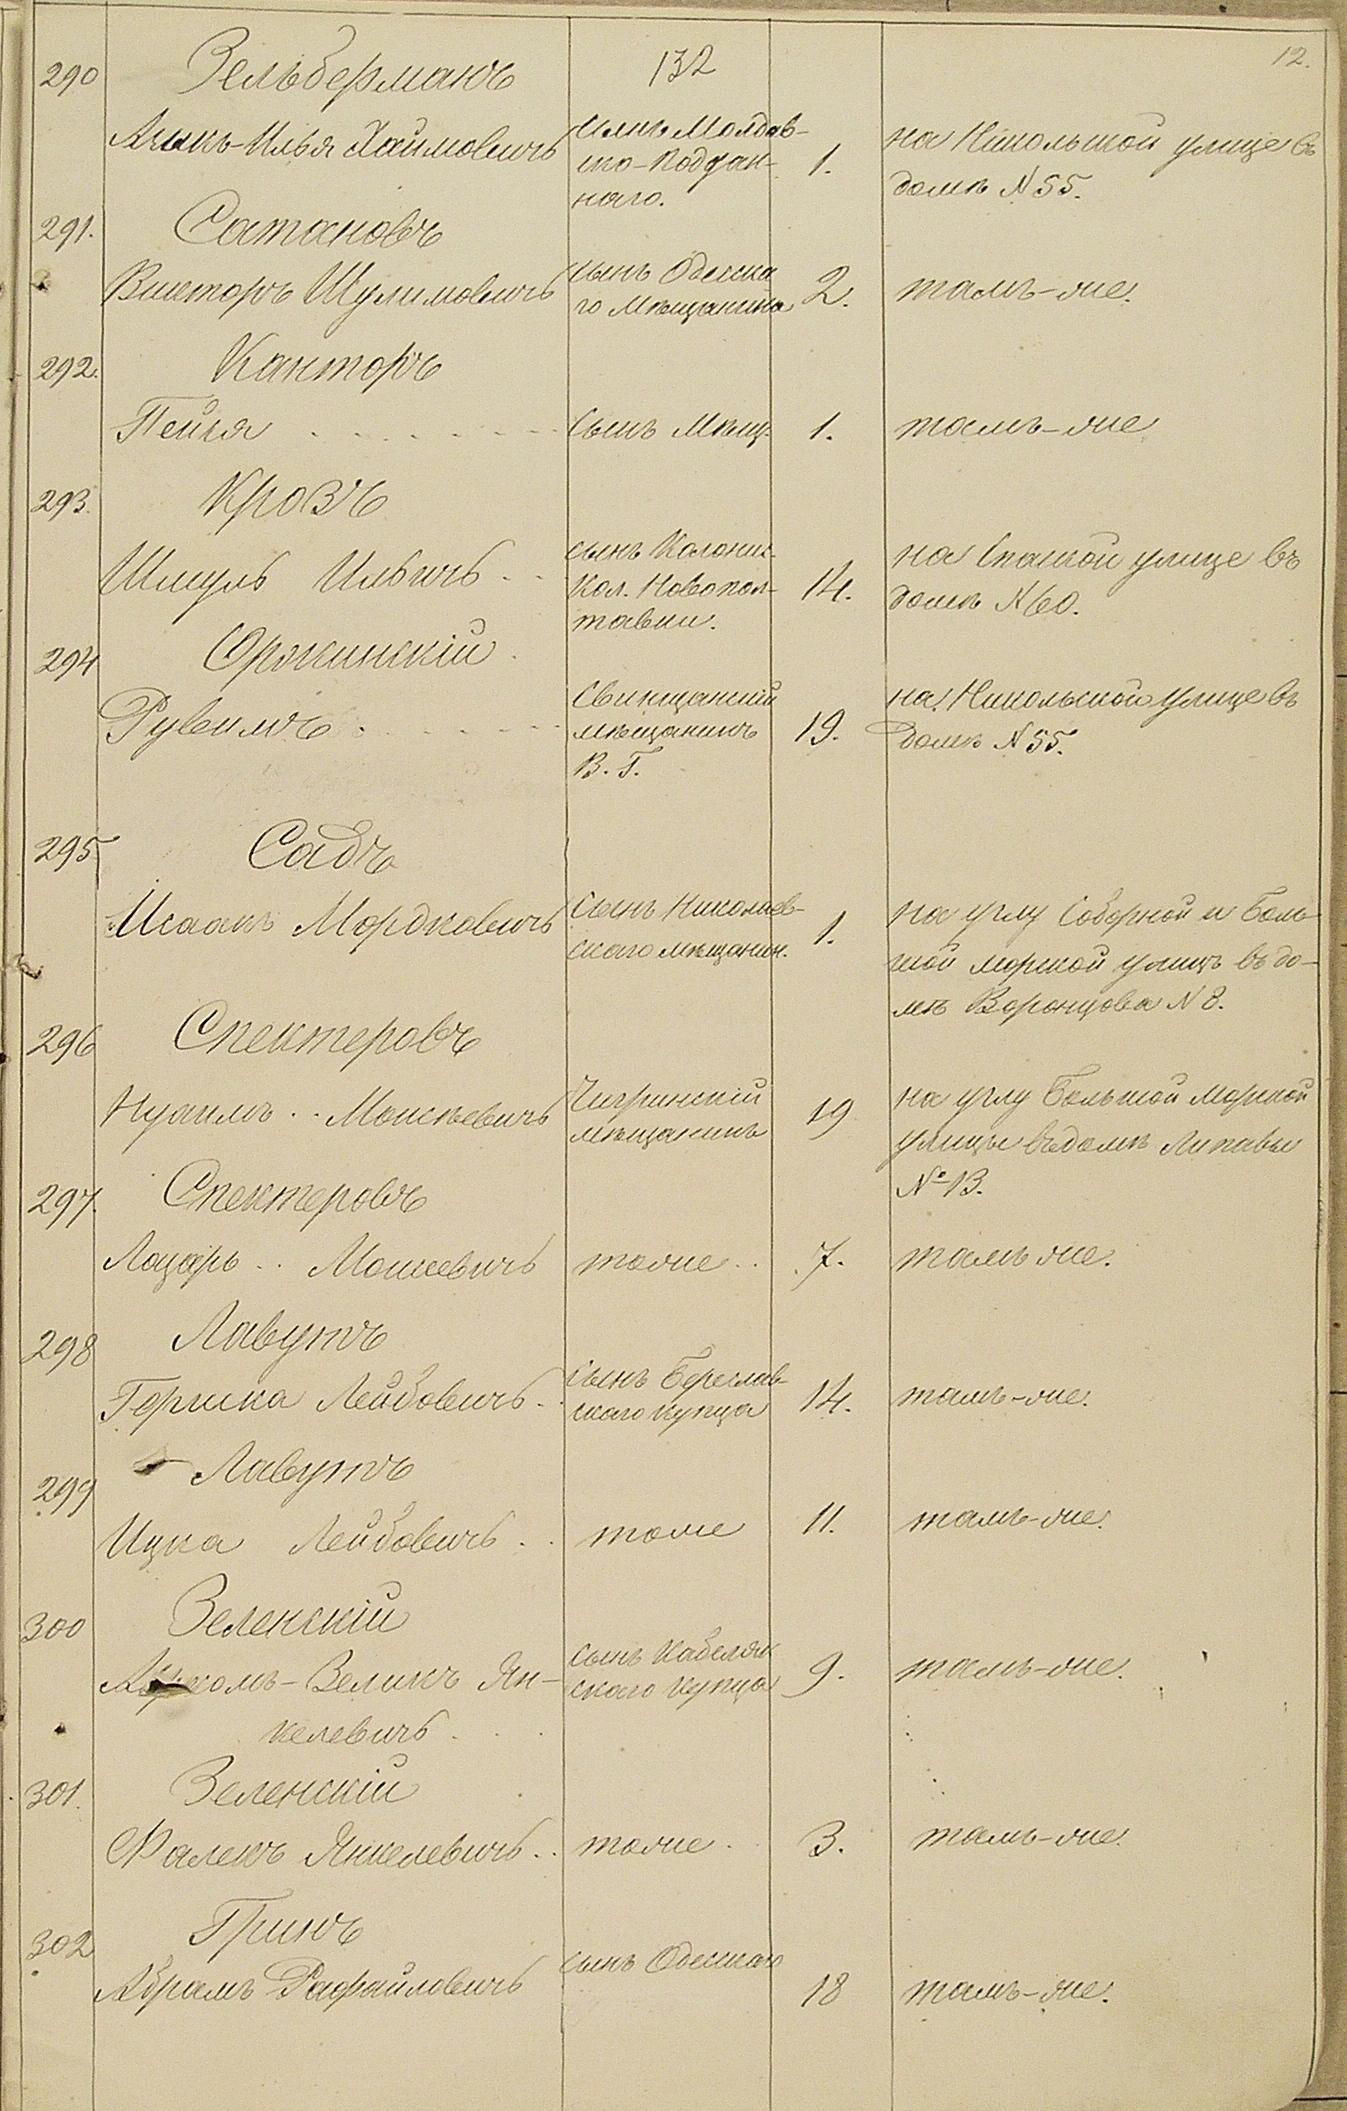 132
12.
290 Зельберманъ
Ицикъ-Илья Хаимовичъ
сынъ Молдав-
ско-Поддан-
наго.
1.
на Никольской улице въ
доме N 55.
291. Сатановъ
Викторъ Шулимовичъ
сынъ Одесска
го Мещанина
2.
тамъ-же.
292. Канторъ
Пейся
Сынъ Мещ.
1.
тамъ-же
293. Крозъ
Шмуль Ильичъ
сынъ Колонис.
Кол. Новопол-
тавки.
14.
на Спаской улице въ
домѣ N 60.
294 Оржинскій
Рувимъ
мѣщанинъ
В. Г.
19.
на Никольской улице въ
домѣ N 55.
295 Садъ
Исаакъ Мордковичъ
Сынъ Николаев-
скаго мѣщанин.
1.
на углу Соборной и Боль-
шой морской улицъ въ до-
мѣ Воронцова N 8.
296 Спектеровъ
Нухимъ Моисѣевичъ
Чигринскій
мѣщанинъ
19
на углу Большой Морской
улицы въ домѣ Липавы
№ 13.
297. Спектеровъ
Лазарь Моисеевичъ
тоже
7.
тамъ же.
298 Лавутъ
Гершка Лейбовичъ
сынъ Береслав-
скаго купца
14.
тамъ-же.
299 Лавутъ
Ицка Лейбовичъ
тоже
11.
тамъ-же.
300 Зеленскій
Зеликъ Ян-
келевичъ
сынъ Кабеляк
скаго купца
9.
тамъ-же.
301. Зеленскій
Фалекъ Янкелевичъ
тоже
3.
тамъ-же.
302 Гринъ
Абрамъ Рафаиловичъ
сынъ Одесскаго
18
тамъ-же.